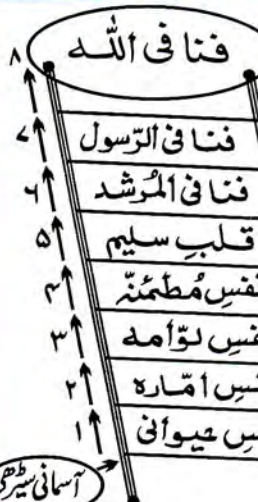 ۸ فنا فی اللہ
۷ فنا فی الرّسول
۶ فنا فی المُرشد
۵ قلبِ سلیم
۴ نفسِ مُطمَئنّہ
۳ نفسِ لوّامہ
۲ نفسِ امّارہ
۱ نفسِ حیوانی
آسمانی سیڑھی